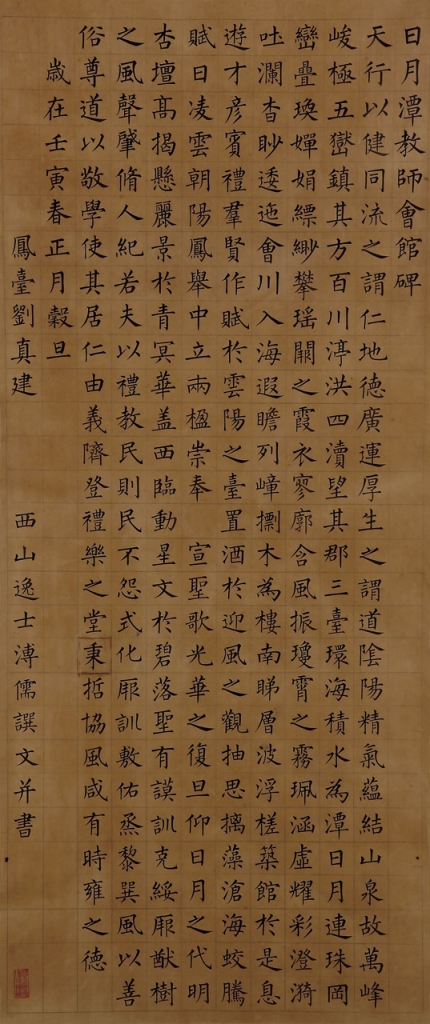 日月潭教師會館碑
天行以健同流之謂仁地德廣運厚生之謂道陰陽精氣蘊結山泉故萬峰
峻極五嶽鎮其方百川渟洪四瀆望其郡三臺環海積水為潭日月連珠岡
巒疊瑍嬋娟縹緲攀瑤關之霞衣寥廓含風振瓊霄之霧珮涵虛耀彩澄漪
吐瀾杳眇逶迤會川入海遐瞻列嶂摽木為樓南睇層波浮槎築館於是息
遊才彥賓禮羣賢作賦於雲陽之臺置酒於迎風之觀抽思摛藻滄海蛟騰
賦日凌雲朝陽鳳舉中立兩楹崇奉 宣聖歌光華之復旦仰日月之代明
杏壇高揭懸麗景於青冥華盖西臨動星文於碧落聖有謨訓克綏厥猷樹
之風聲肇脩人紀若夫以禮教民則民不怨式化厥訓敷佑烝黎巽風以善
俗尊道以敬學使其居仁由義隮登禮樂之堂秉哲協風咸有時雍之德
歲在壬寅春正月穀旦
鳳臺劉真建 西山逸士溥儒譔文并書